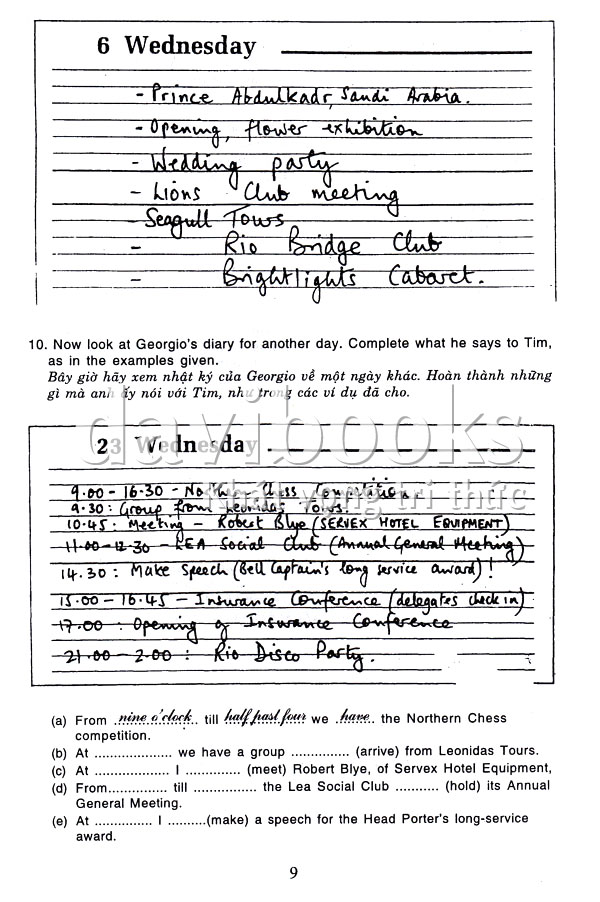 6 Wednesday
- Prince Abdulkadr, Saudi Arabia.
- Opening, flower exhibition
- Wedding party
- Lions Club meeting
- Seagull Tours
- Rio Bridge Club
- Brightlights Cabaret.
10. Now look at Georgio's diary for another day. Complete what he says to Tim,
as in the examples given.
Bây giờ hãy xem nhật ký của Georgio về một ngày khác. Hoàn thành những
gì mà anh ấy nói với Tim, như trong các ví dụ đã cho.
davibooks
23 Wednesday
9.00 - 16.30 - Northern Chess Competition.
9.30 : Group from Leonidas Tours.
10.45 : Meeting - Robert Blye (SERVEX HOTEL EQUIPMENT)
11.00 - 12.30 - LEA Social Club (Annual General Meeting)
14.30 : Make speech (Bell Captain's long service award) !
15.00 - 16.45 - Insurance Conference (delegates check in)
17.00 : Opening of Insurance Conference
21.00 - 2.00 : Rio Disco Party.
(a) From nine o'clock till half past four we have the Northern Chess
competition.
(b) At ................... we have a group .............. (arrive) from Leonidas Tours.
(c) At ................... I ............. (meet) Robert Blye, of Servex Hotel Equipment,
(d) From............... till ................ the Lea Social Club ........... (hold) its Annual
General Meeting.
(e) At ............... I ..........(make) a speech for the Head Porter's long-service
award.
9